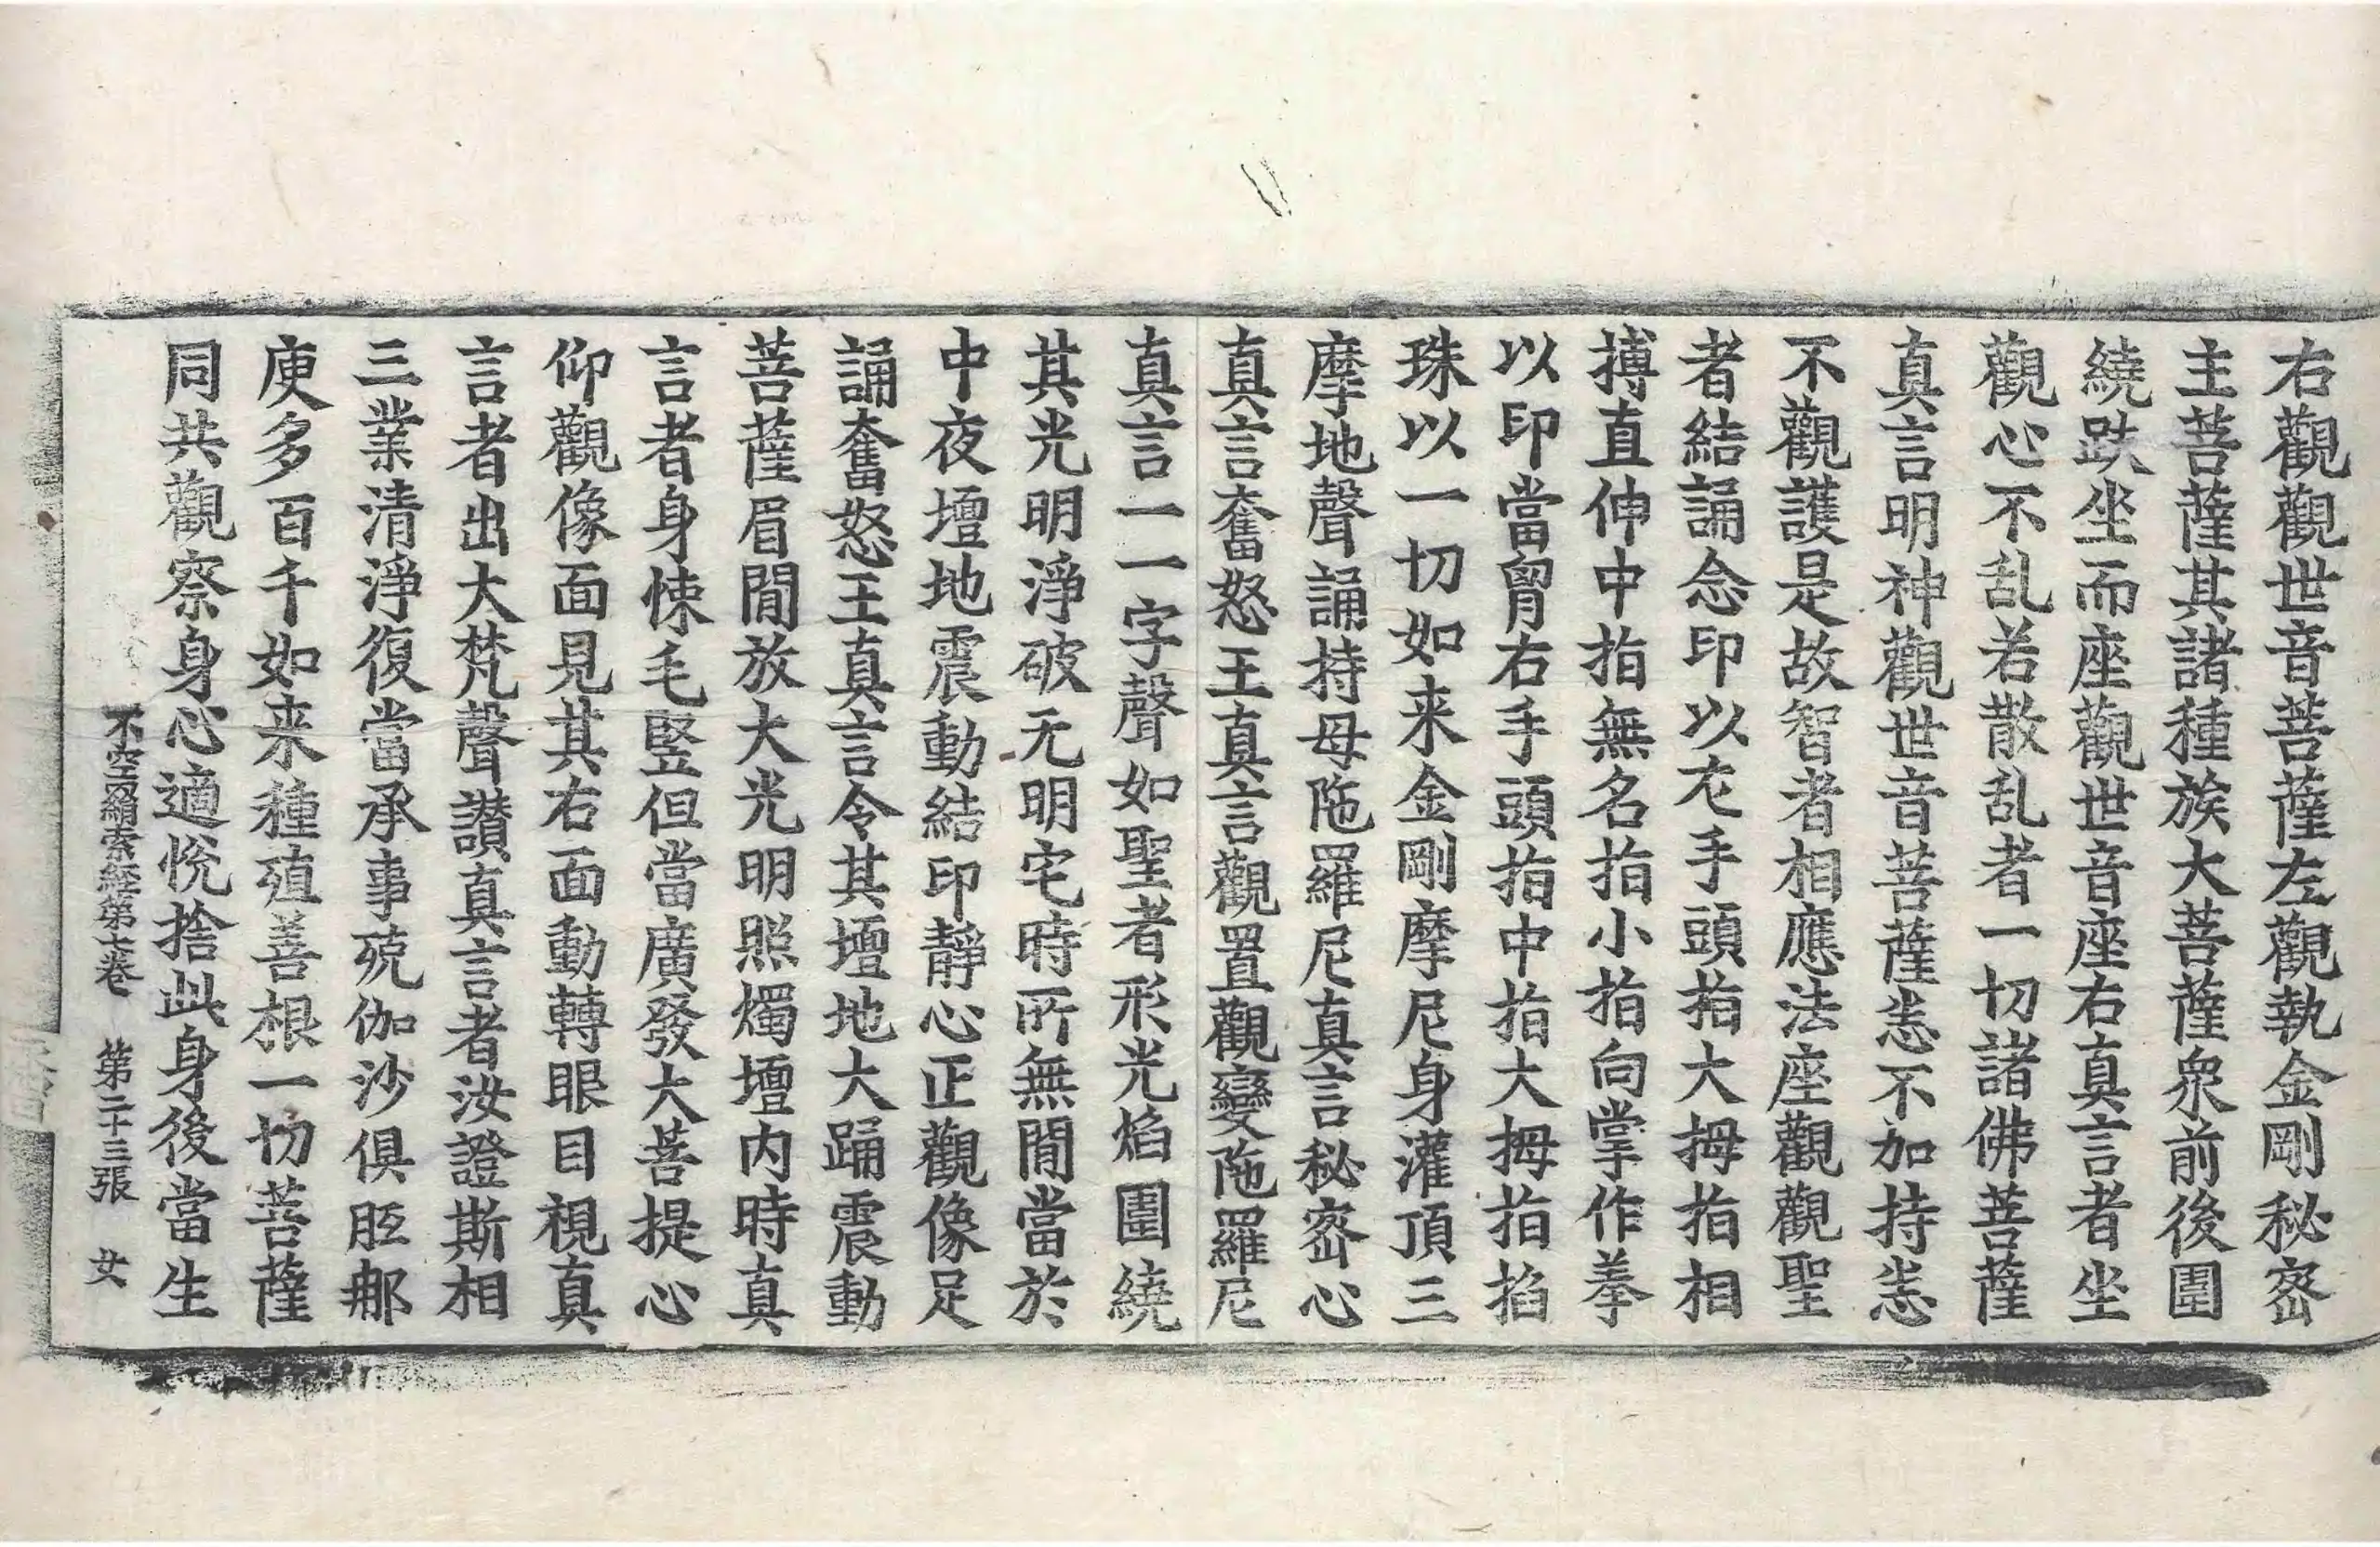 右觀觀世音菩薩左觀執金剛秘密
主菩薩其諸種族大菩薩衆前後圍
繞趺坐而座觀世音座右真言者坐
觀心不乱若散乱者一切諸佛菩薩
真言明神觀世音菩薩恙不加持恙
不觀護是故智者相應法座觀觀聖
者結誦念印以左手頭指大拇指相
搏直伸中指無名指小指向掌作拳
以印當胷右手頭指中指大拇指掐
珠以一切如来金剛摩尼身灌頂三
摩地聲誦持母陁羅尼真言秘密心
真言奮怒王真言觀置觀變陁羅尼
真言一一字聲如聖者形光焰圍繞
其光明淨破无明宅時所無閒當於
中夜壇地震動結印靜心正觀像足
誦奮怒王真言令其壇地大踊震動
菩薩眉閒放大光明照燭壇内時真
言者身悚毛竪但當廣發大菩提心
仰觀像面見其右面動轉眼目視真
言者出大梵聲讃真言者汝證斯相
三業清淨復當承事殑伽沙俱胝那
庾多百千如来種殖善根一切菩薩
同共觀察身心適悅捨此身後當生
不空羂索經第七卷 第二十三張 女